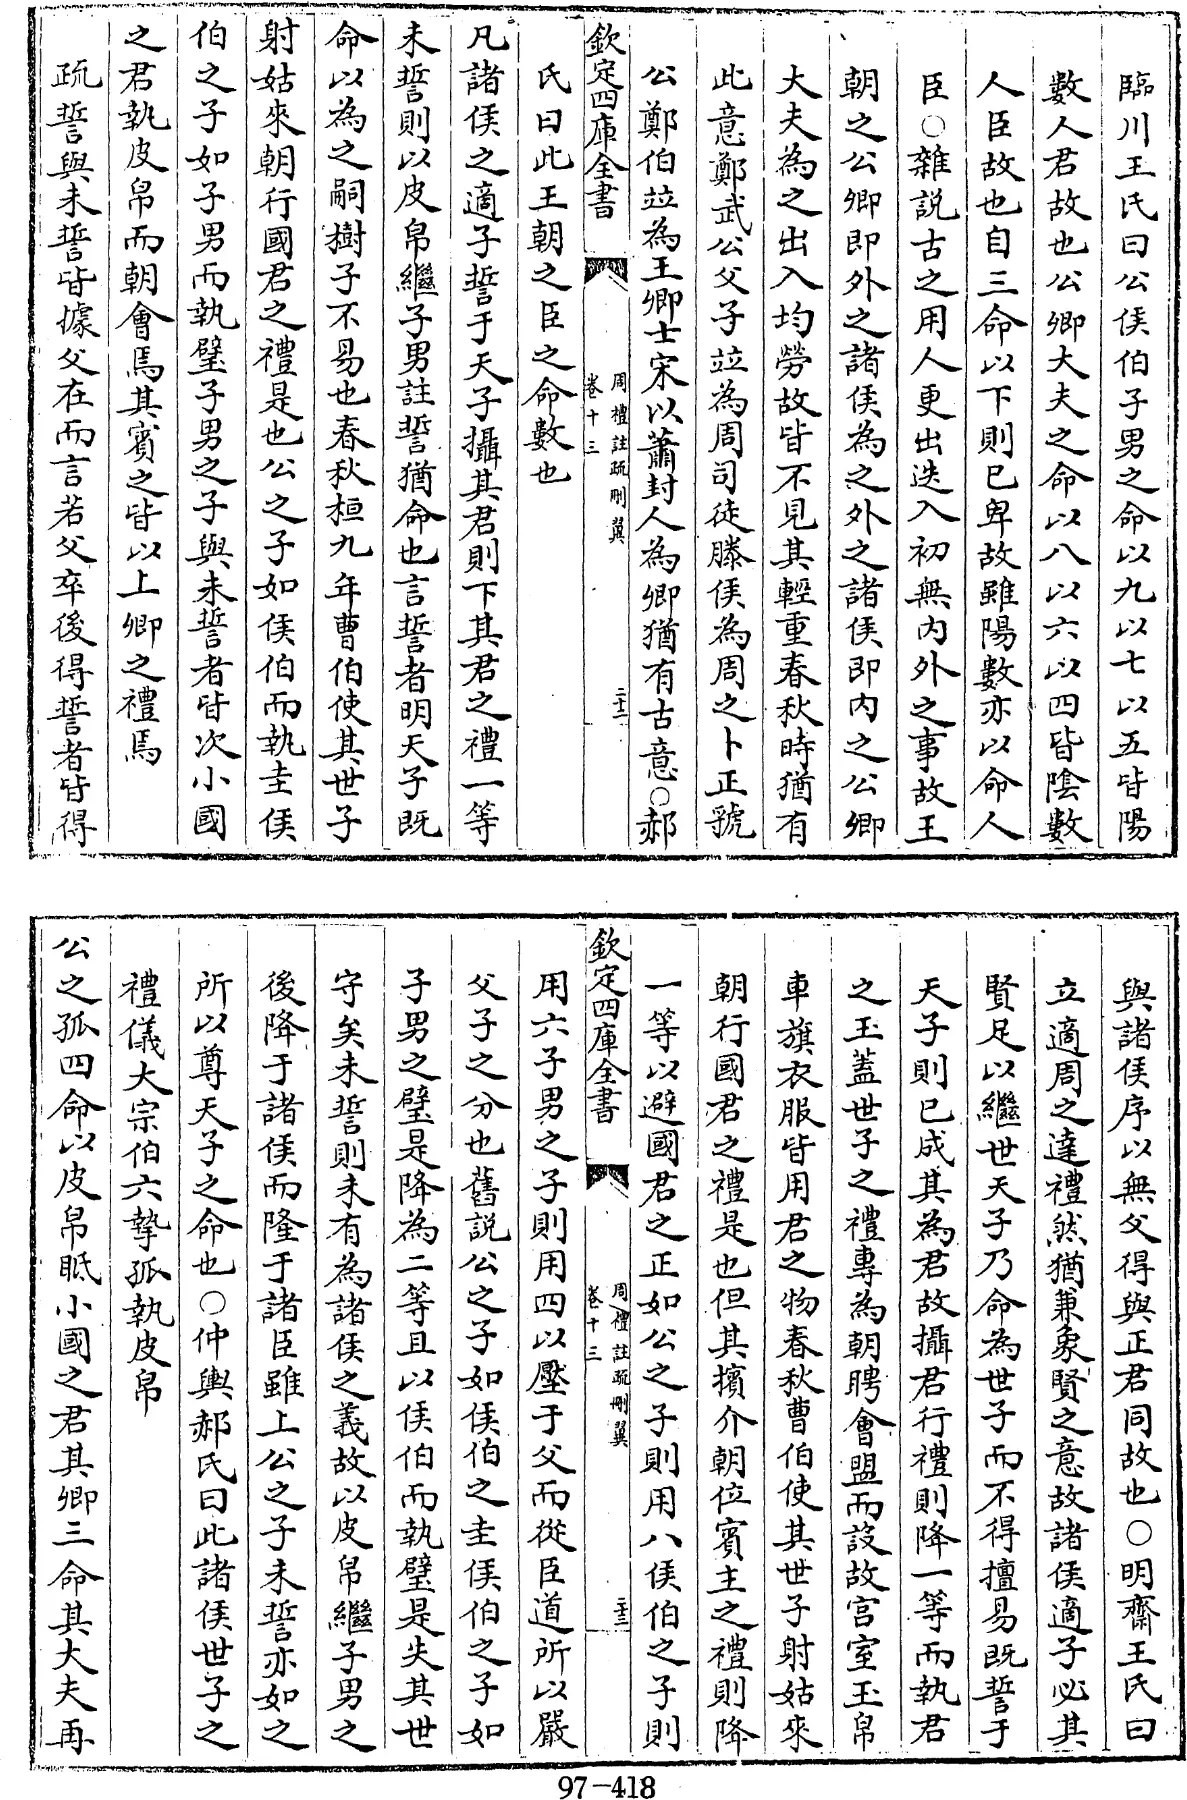 臨川王氏曰公侯伯子男之命以九以七以五皆陽
數人君故也公卿大夫之命以八以六以四皆陰數
人臣故也自三命以下則已卑故雖陽數亦以命人
臣○雜説古之用人更出迭入初無内外之事故王
朝之公卿即外之諸侯為之外之諸侯即内之公卿
大夫為之出入均勞故皆不見其輕重春秋時猶有
此意鄭武公父子竝為周司徒滕侯為周之卜正虢
公鄭伯竝為王卿士宋以蕭封人為卿猶有古意○郝
欽定四庫全書
周禮註疏刪翼
卷十三
二十二
氏曰此王朝之臣之命數也
凡諸侯之適子誓于天子攝其君則下其君之禮一等
未誓則以皮帛繼子男註誓猶命也言誓者明天子既
命以為之嗣樹子不易也春秋桓九年曹伯使其世子
射姑來朝行國君之禮是也公之子如侯伯而執圭侯
伯之子如子男而執璧子男之子與未誓者皆次小國
之君執皮帛而朝會焉其賓之皆以上卿之禮焉
疏誓與未誓皆據父在而言若父卒後得誓者皆得
與諸侯序以無父得與正君同故也○明齋王氏曰
立適周之達禮然猶兼象賢之意故諸侯適子必其
賢足以繼世天子乃命為世子而不得擅易既誓于
天子則已成其為君故攝君行禮則降一等而執君
之玉蓋世子之禮專為朝聘會盟而設故宫室玉帛
車旗衣服皆用君之物春秋曹伯使其世子射姑來
朝行國君之禮是也但其擯介朝位賓主之禮則降
一等以避國君之正如公之子則用八侯伯之子則
欽定四庫全書
周禮註疏刪翼
卷十三
二十三
用六子男之子則用四以壓于父而從臣道所以嚴
父子之分也舊説公之子如侯伯之圭侯伯之子如
子男之璧是降為二等且以侯伯而執璧是失其世
守矣未誓則未有為諸侯之義故以皮帛繼子男之
後降于諸侯而隆于諸臣雖上公之子未誓亦如之
所以尊天子之命也○仲輿郝氏曰此諸侯世子之
禮儀大宗伯六摯孤執皮帛
公之孤四命以皮帛眡小國之君其卿三命其大夫再
97-418